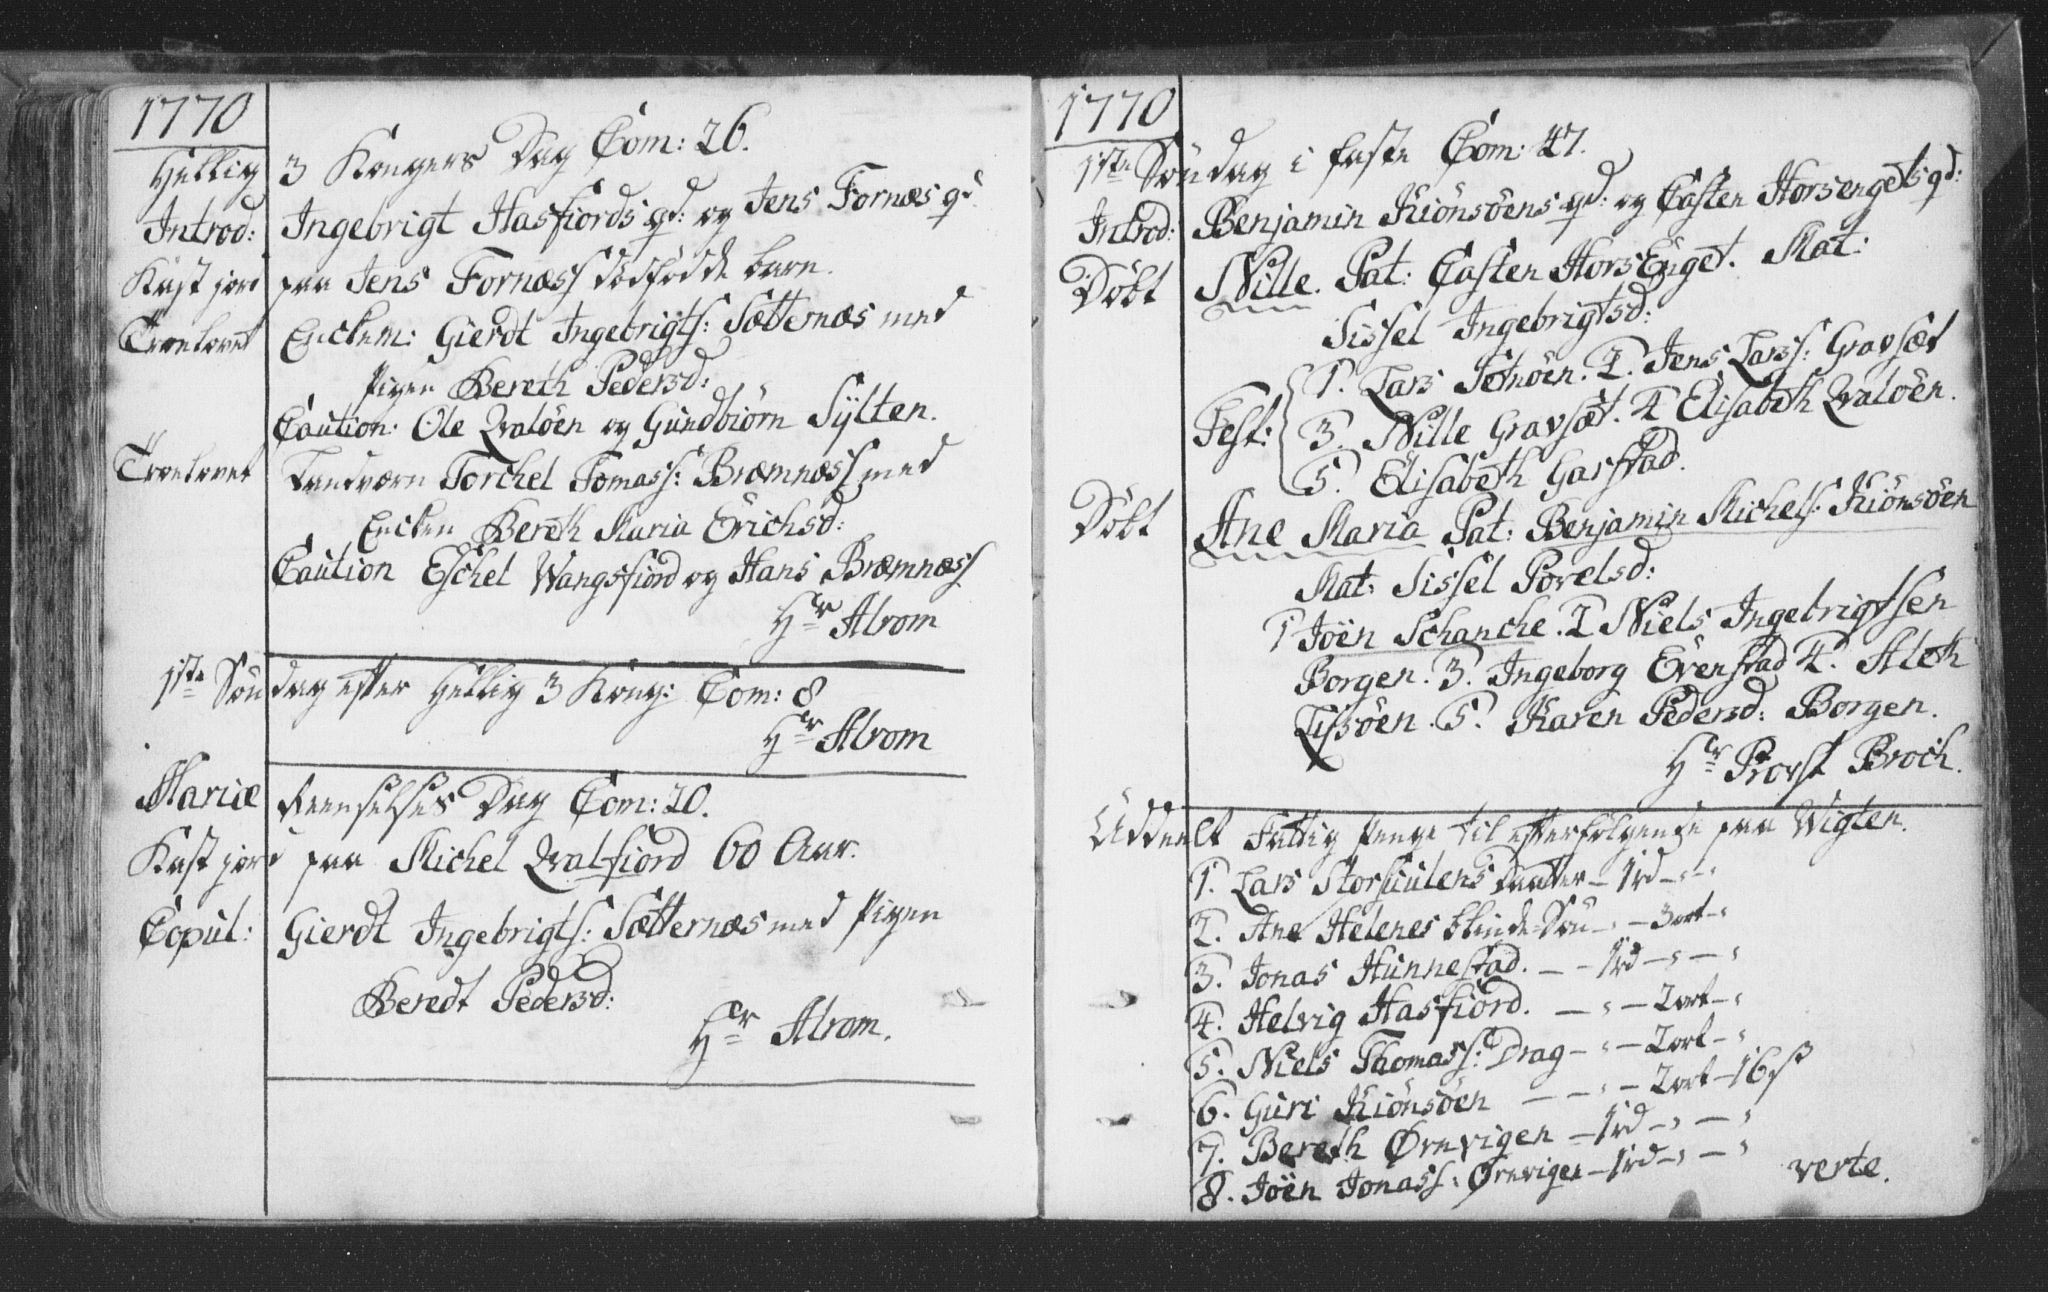 1770
Hellig 3 Kongers Dag Com: 26.
Introd: Ingebrigt Hasfiords qd: og Jens Fornæs qd
Kast jord paa Jens Fornæss dødfødde barn.
Troelovet Enckem: Gierdt Ingebrigts: Sætternæs med
Pigen Bereth Pedersd:
Caution: Ole Qvaløen og Gundbiørn Sÿlten.
Troelovet Landværn Torchel Tomass: Bræmnæss med
Encken Bereth Maria Erichsd:
Caution Eschel Wangsfiord og Hans Bræmnæss
Hr Alrom
1ste Søndag efter Hellig 3 Kong: Com: 8
Hr Alrom
Mariæ Reenselses Dag Com: 20.
Kast jord paa Michel Qvalfiord 60 Aar.
Copul: Gierdt Ingebrigts: Sætternæs med Pigen
Beredt Pedersd:
Hr Alrom.
1770
1ste Søndag i faste Com: 47.
Introd: Benjamin Kiønsøens qd: og Casten Horsengets qd:
Døbt Nille. Pat: Casten HorsEnget. Mat:
Sissel Ingebrigtsd:
Test: 1. Lars Sætnøen. 2. Jens Lars: Gravsæt
3. Nille Gravsæt. 4 Elisabeth Qvaløen.
5. Elisabeth Garstad.
Døbt Ane Maria Pat: Benjamin Michels: Kiønsøen
Mat: Sissel Povelsd:
1 Joen Schanche. 2 Niels Ingebrigtsen
Borgen. 3. Ingeborg Evenstad 4. Aleth
Lissøen. 5. Karen Pedersd: Borgen.
Hr Provst Broch.
Uddeelt Fattig Penge til efterfølgende paa Wigten.
1. Lars Storsuulens Daatter – 1rd – " – "
2. Ane Helenes blinde Søn – " – 3ort – "
3. Jonas Hunnestad. – – 1rd – " – "
4. Helvig Hasfiord. – " – 2ort – "
5. Niels Thomass: Drag – " – 2ort – "
6. Guri Kiønsøen – – " – 2ort – 16s
7. Bereth Ørnvigen – 1rd – " – "
8. Joen Jonass: Ørnvigen – 1rd – " – "
verte.